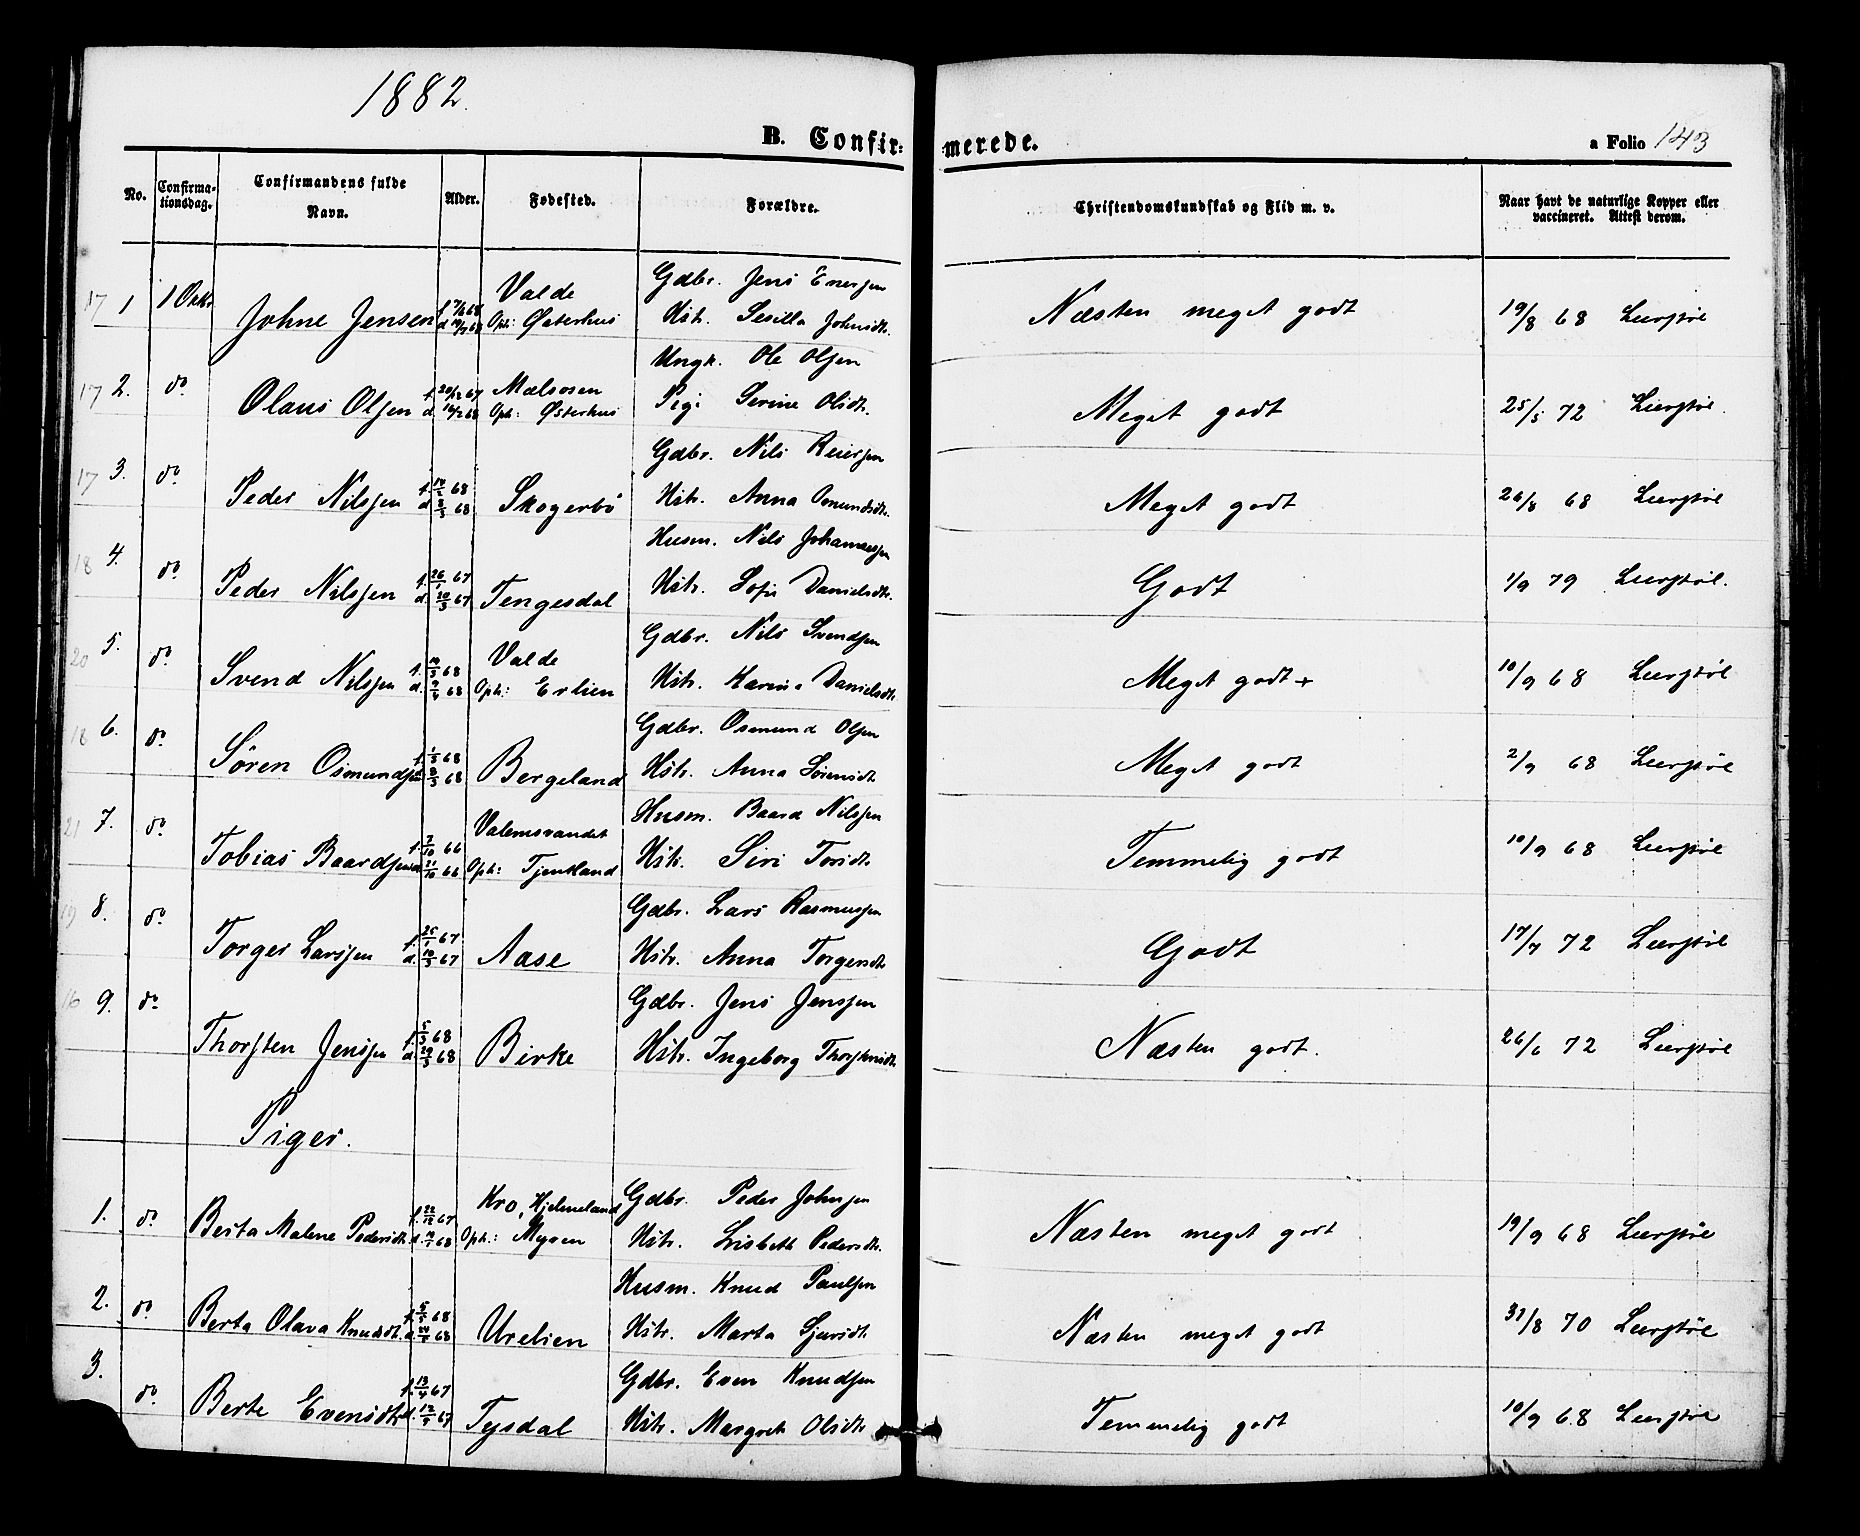 1882.
B. Confir-merede.
a Folio 143
No.
Confirma-
tionsdag.
Confirmandens fulde
Navn.
Alder.
Fødested.
Forældre.
Christendomskundskab og Flid m. v.
Naar havt de naturlige Kopper eller
vaccineret. Attest derom.
17 1 1 Oktr Johne Jensen Valde
Oph: Østerhus
Gdbr. Jens Enersen
Hstr. Sesilla Johnsdtr.
Næsten meget godt 19/8 68 Liersiøl
17 2. do Olaus Olsen f. 20/12 67 Mælsosen
Oph: Østerhus
Ungk. Ole Olsen
Pige Serine Olsdt.
Meget godt 25/5 72 Liersiøl.
17 3. do Peder Nilssen Skogerbö
Gdbr. Nils Reiersen
Hstr. Anna Osmundsdtr.
Meget godt 26/8 68 Liersiøl
18 4. do. Peder Nilssen f. 26/1 67 Tengesdal
Husm. Nils Johannessen
Hstr. Sofie Danielsdtr.
Godt 1/9 79 Liersiøl.
20 5. do. Svend Nilssen Valde
Oph: Erlien
Gdbr. Nils Svendsen
Hstr. Karina Danielsdtr.
Meget godt + 10/9 68 Liersiøl
18 6. do. Søren Osmundsen Bergeland
Gdbr. Osmund Olsen
Hstr. Anna Sörensdt
Meget godt 2/9 68 Liersiøl
21 7. do. Tobias Baardsen Valemsvandet
Oph: Tjentland
Husm. Baard Nilssen
Hstr. Siri Torsdt.
Temmelig godt 10/9 68 Liersiøl
19 8. do. Torger Larssen f. 25/1 67 Aase
Gdbr. Lars Rasmussen
Hstr. Anna Torgersdt
Godt 17/7 72 Liersiøl
16 9. do. Thorsten Jenssen Birke
Gdbr. Jens Jenssen
Hstr. Ingeborg Thorstensdtr.
Næsten godt. 26/6 72 Liersiøl
Piger.
1. do. Berta Malene Pedersdtr. f. 22/12 67 Kro, Hjelmeland
Oph: Myren
Gdbr. Peder Johnsen
Hstr. Lisbeth Pedersdtr.
Næsten meget godt 19/9 68 Liersiøl
2. do Berta Olava Knudsdt. Urelien
Husm. Knud Paulsen
Hstr. Marta Sjursdt.
Næsten meget godt 31/8 70 Liersiøl
3. do. Berte Evensdtr f. 13/4 67 Tysdal
Gdbr. Even Knudsen
Hstr. Margrete Olsdtr
Temmelig godt 10/9 68 Liersiøl